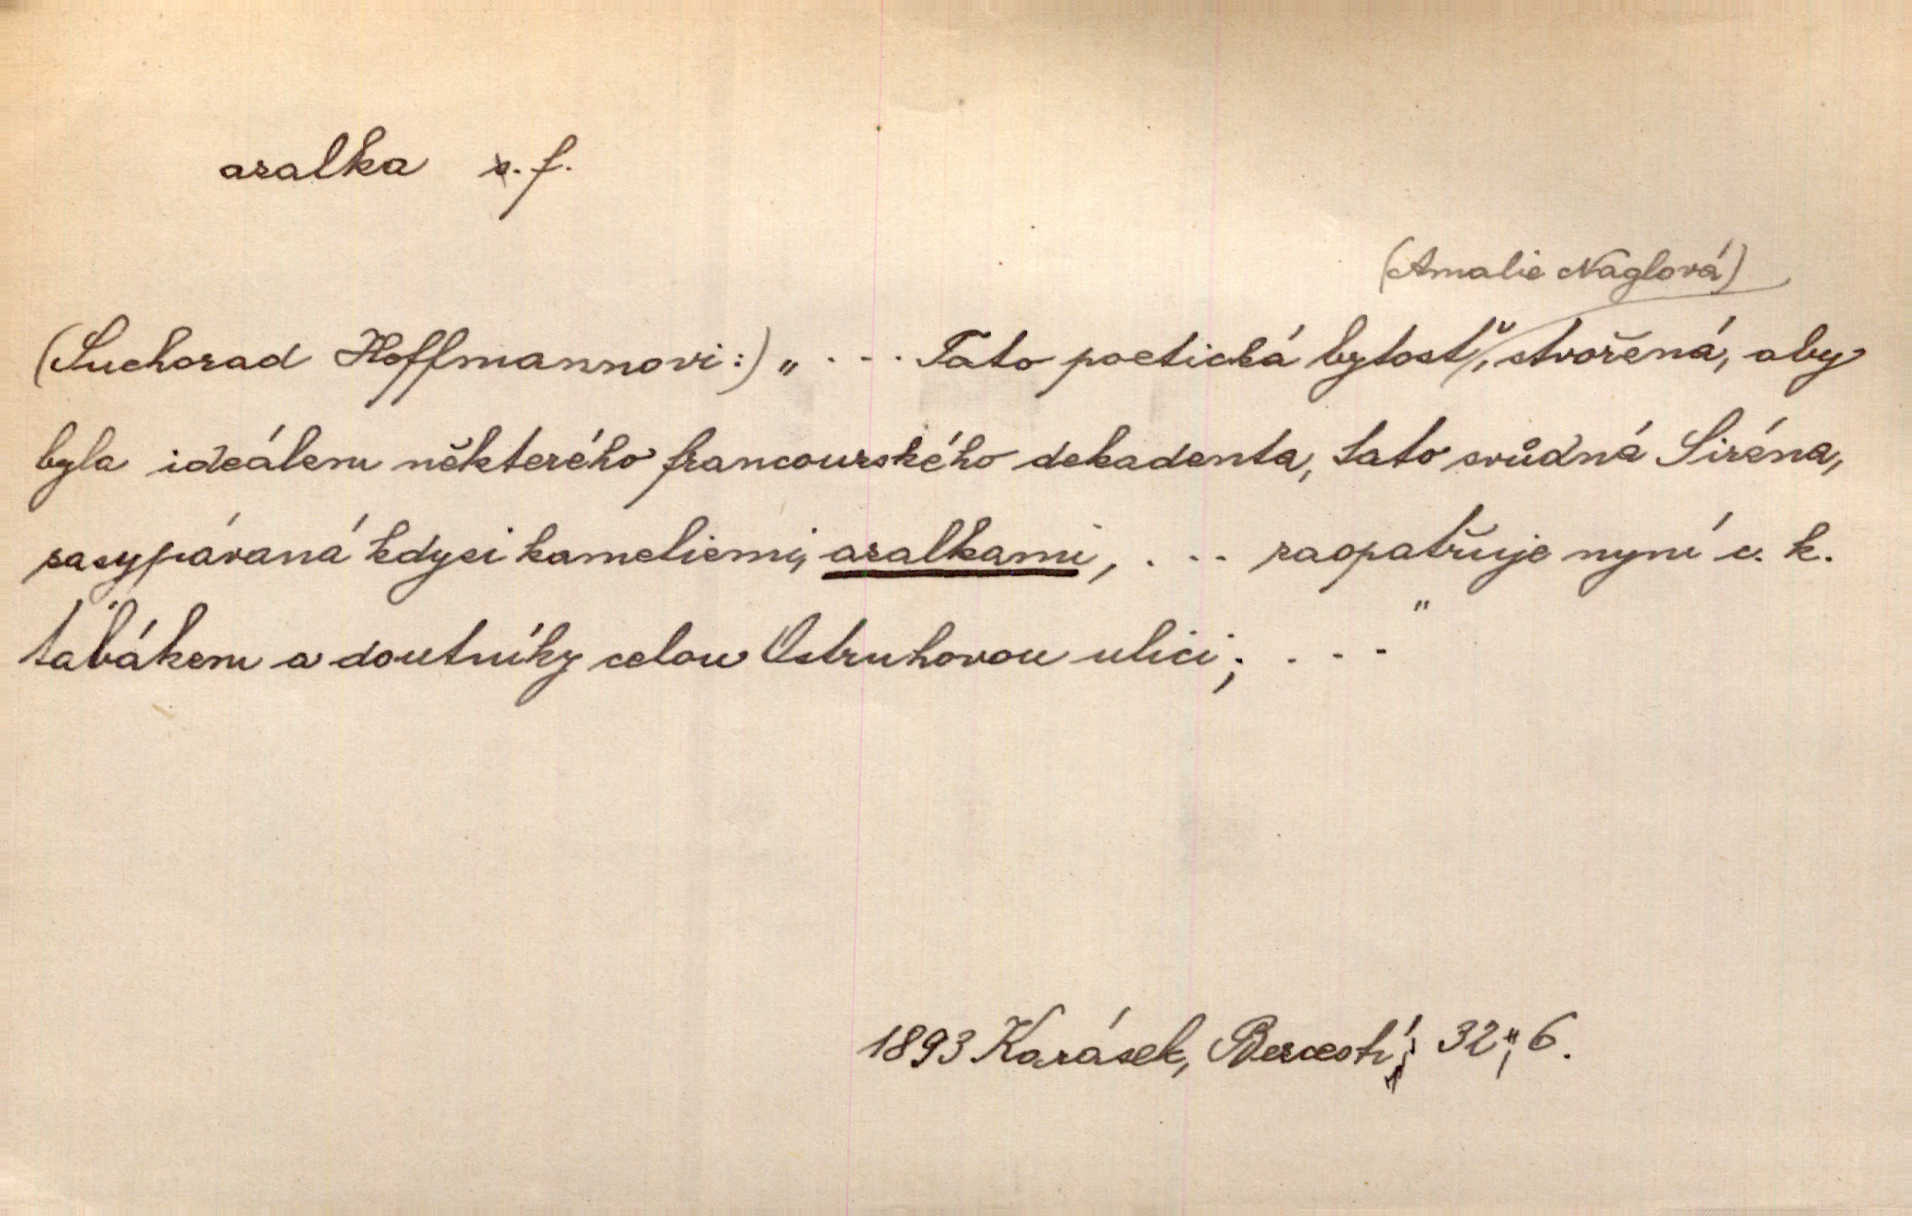 azalka s. f.
(Amalie Naglová)
(Suchorad Hoffmannovi:) „ . . . Tato poetická bytosť, stvořená, aby
byla ideálem některého francouzského dekadenta, tato svůdná Siréna,
zasypávaná kdysi kameliemi, azalkami, . . . zaopatřuje nyní c. k.
tabákem a doutníky celou Ostruhovou ulici; . . . "
1893 Karásek, Bezcestí; 32", 6.